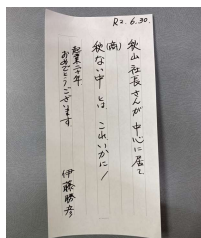 R2.6.30.
秋山社長さんが中心に居て
(商)
秋ない中とはこれいかに!
起業二十年
おめでとうございます
伊藤勝彦